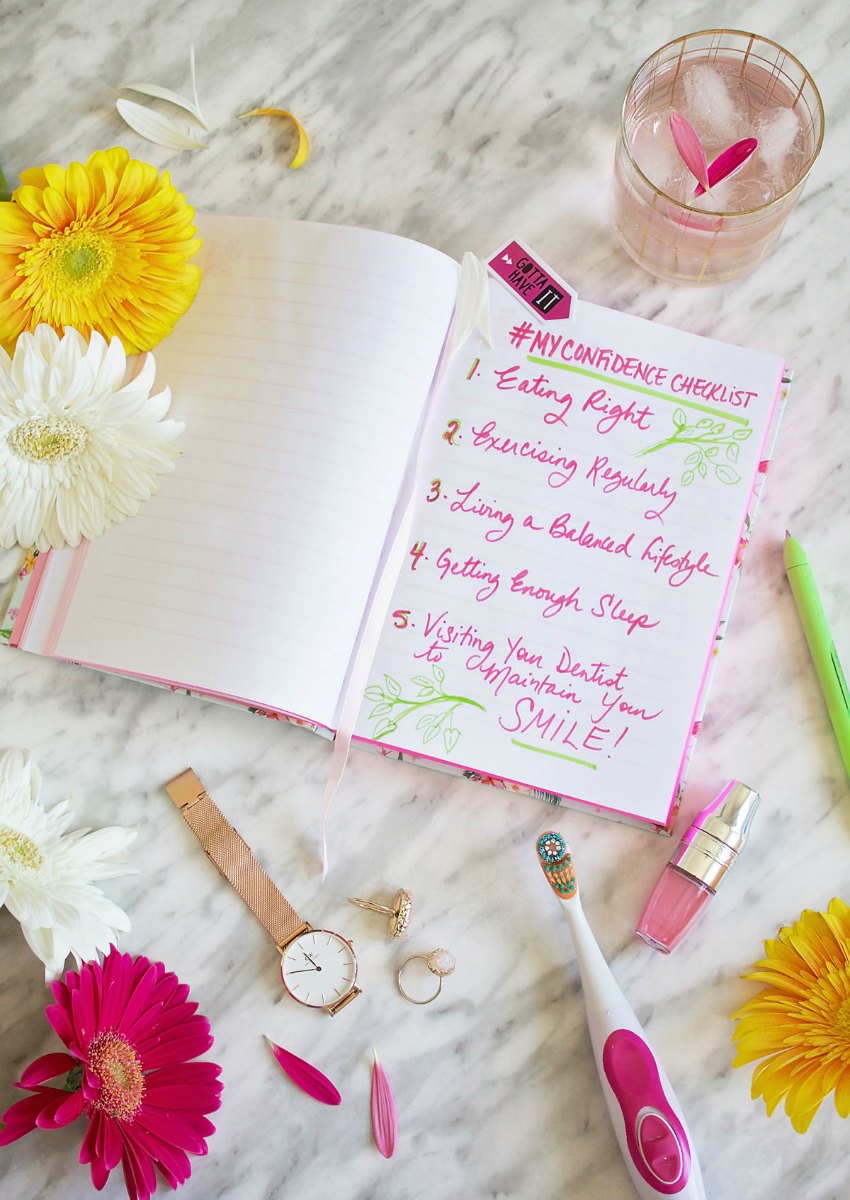 GOTTA
HAVE IT
#MYCONFIDENCE CHECKLIST
1. Eating Right
2. Exercising Regularly
3. Living a Balanced Lifestyle
4. Getting Enough Sleep
5. Visiting Your Dentist
to Maintain Your
SMILE!